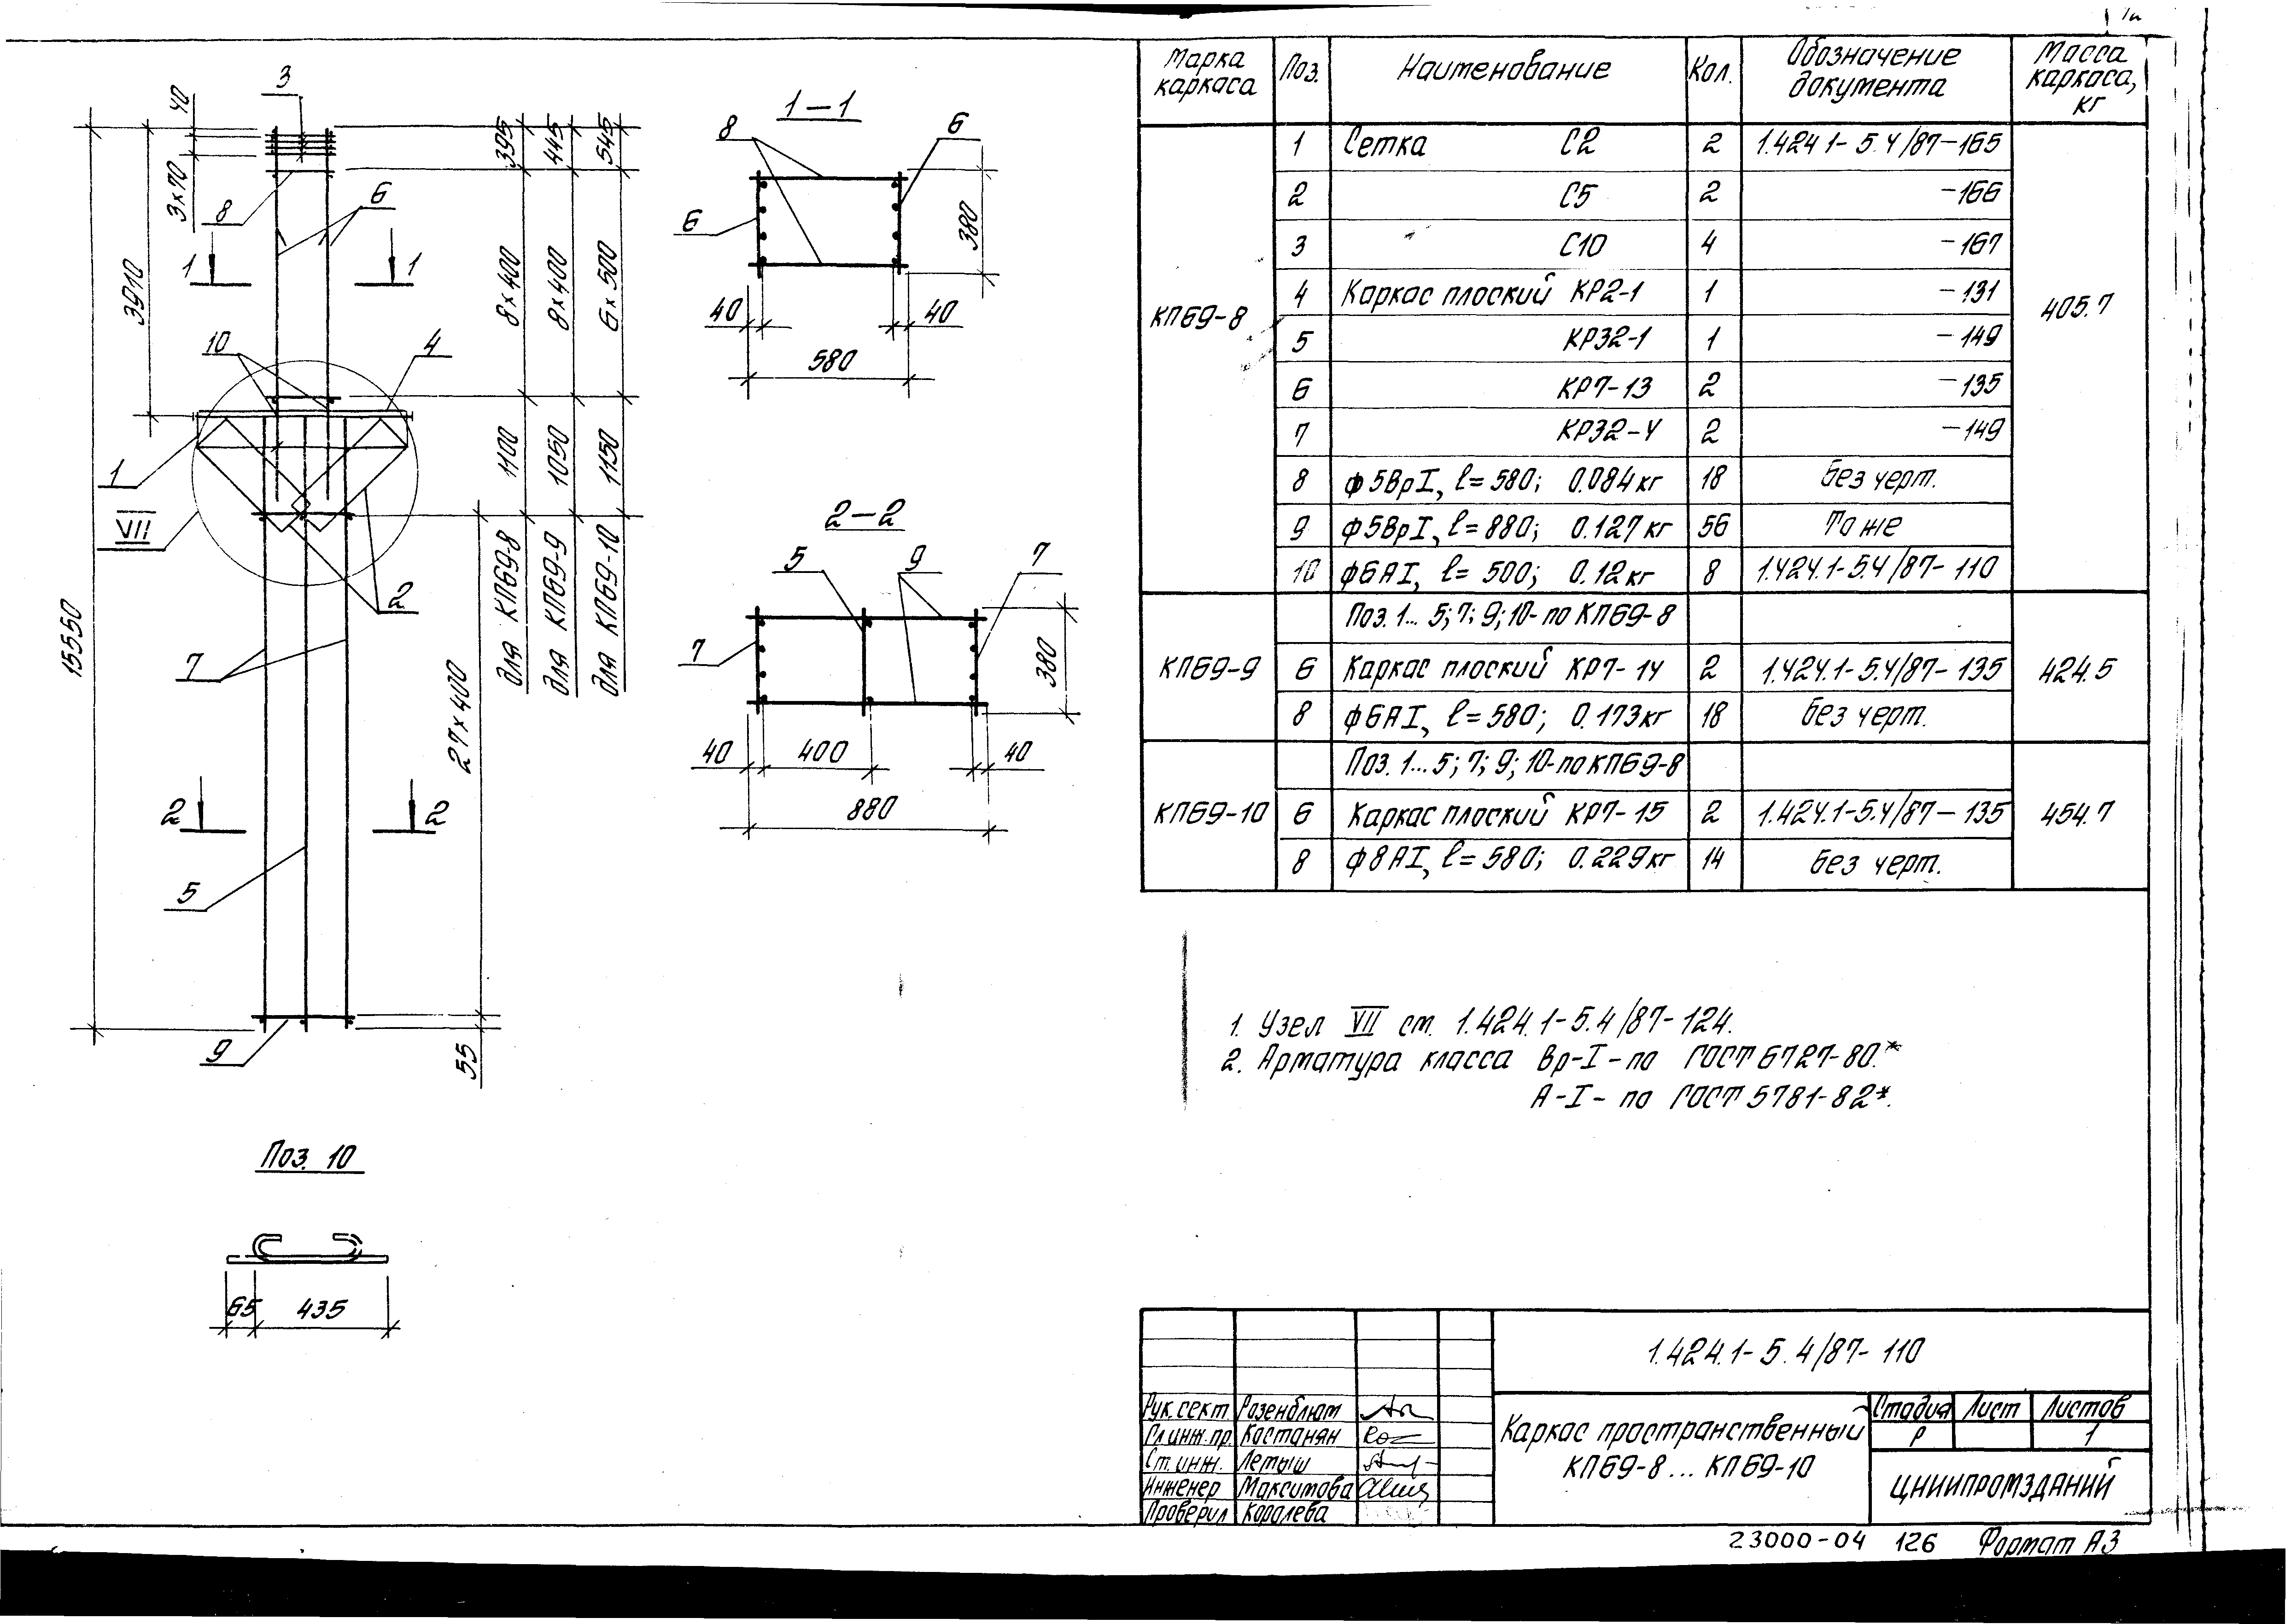 3
40
3×70
8
6
3910
1 1
10
4
1
VII
2
15550
7
2 2
5
9
395
445
545
8×400
8×400
6×500
1100
1050
1150
для КП69-8
для КП69-9
для КП69-10
27×400
55
1-1
8
6
6
380
40
40
580
2-2
5
9
7
7
380
40 400 40
880
Поз. 10
65 435
Марка каркаса Поз. Наименование Кол. Обозначение документа Масса каркаса, кг
КП69-8 405.7
1 Сетка С2 2 1.424.1-5.4/87-165
2 С5 2 -166
3 С10 4 -167
4 Каркас плоский КР2-1 1 -131
5 КР32-1 1 -149
6 КР7-13 2 -135
7 КР32-4 2 -149
8 ф5ВрI, l=580; 0.084кг 18 Без черт.
9 ф5ВрI, l=880; 0.127кг 56 То же
10 ф6АI, l=500; 0.12кг 8 1.424.1-5.4/87-110
Поз. 1...5; 7; 9; 10-по КП69-8
КП69-9 6 Каркас плоский КР7-14 2 1.424.1-5.4/87-135 424.5
8 ф6АI, l=580; 0.173кг 18 Без черт.
Поз. 1...5; 7; 9; 10-по КП69-8
КП69-10 6 Каркас плоский КР7-15 2 1.424.1-5.4/87-135 454.7
8 ф8АI, l=580; 0.229кг 14 Без черт.
1. Узел VII см. 1.424.1-5.4/87-124.
2. Арматура класса Вр-I-по ГОСТ 6727-80.*
А-I-по ГОСТ 5781-82*.
1.424.1-5.4/87-110
Рук.сект. Розенблюм
Гл.инж.пр. Костанян
Ст.инж. Летыш
Инженер Максимова
Проверил Королева
Каркас пространственный
КП69-8...КП69-10
Стадия Лист Листов
Р 1
ЦНИИПРОМЗДАНИЙ
23000-04 126 Формат А3